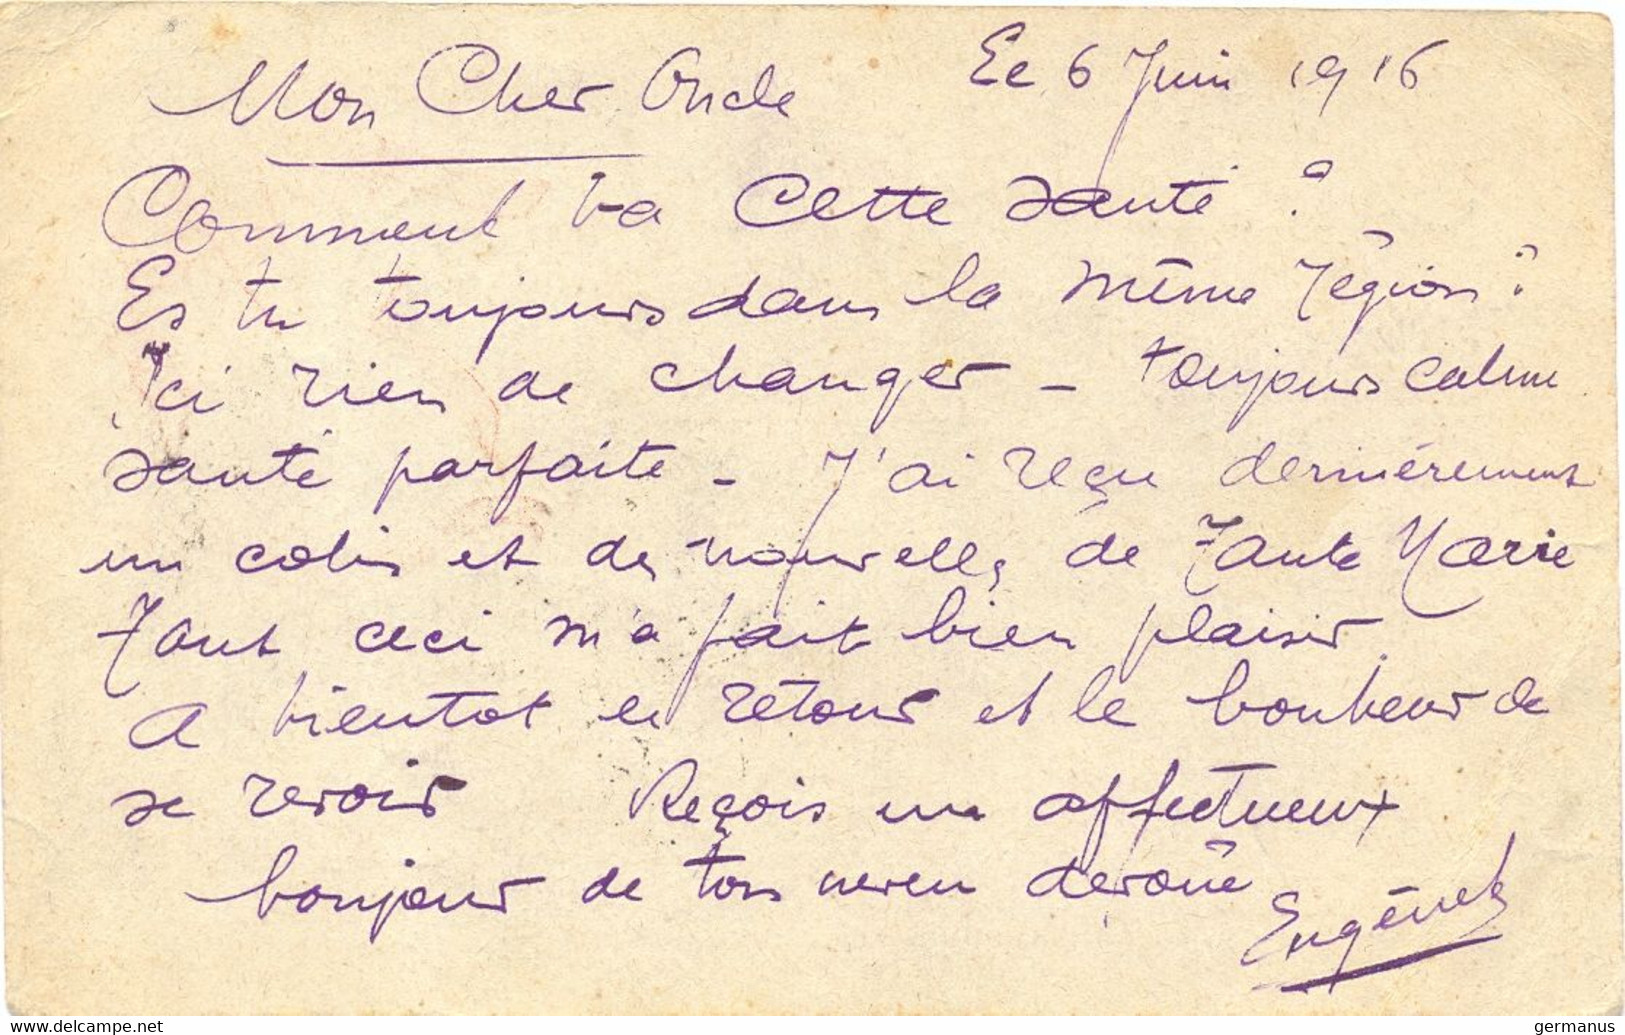 Le 6 Juin 1916
Mon Cher Oncle
Comment va cette santé ?
Es tu toujours dans la même région ?
Ici rien de changer - toujours calme
santé parfaite - J'ai reçu dernièrement
un colis et des nouvelles de Tante Marie
Tout ceci m'a fait bien plaisir.
A bientot le retour et le bonheur de
se revoir Reçois un affectueux
bonjour de ton neveu dévoué
www.delcampe.net
germanus